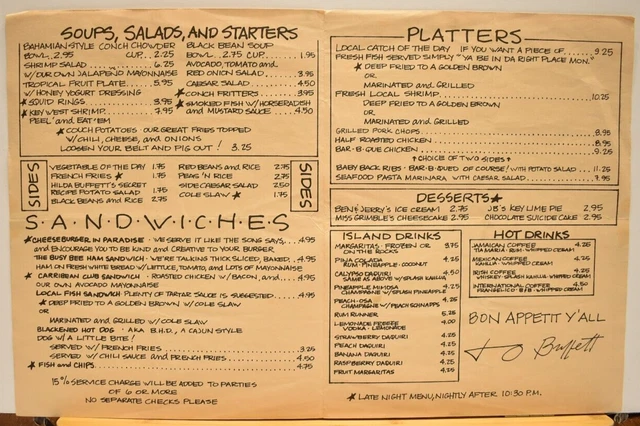 SOUPS, SALADS, AND STARTERS
BAHAMIAN-STYLE CONCH CHOWDER
BOWL..2.95 CUP...2.25
SHRIMP SALAD 6.25
W/OUR OWN JALAPENO MAYONNAISE
TROPICAL FRUIT PLATE 5.95
W/HONEY YOGURT DRESSING
★SQUID RINGS 3.95
★KEY WEST SHRIMP 7.95
PEEL' and EAT'EM
BLACK BEAN SOUP
BOWL..2.75 CUP 1.95
AVOCADO, TOMATO and
RED ONION SALAD 3.95
CAESAR SALAD 4.50
★CONCH FRITTERS 3.95
★SMOKED FISH W/HORSERADISH
and MUSTARD SAUCE 4.50
★COUCH POTATOES OUR GREAT FRIES TOPPED
W/CHILI, CHEESE, and ONIONS
LOOSEN YOUR BELT AND PIG OUT! 3.25
SIDES
VEGETABLE OF THE DAY 1.75
FRENCH FRIES ★ 1.75
HILDA BUFFETT'S SECRET
RECIPE POTATO SALAD 1.75
BLACK BEANS and RICE 2.75
RED BEANS and RICE 2.75
PEAS 'N RICE 2.75
SIDE CAESAR SALAD 2.50
COLE SLAW ★ 1.75
SIDES
S·A·N·D·W·I·C·H·E·S
★CHEESEBURGER IN PARADISE - WE SERVE IT LIKE THE SONG SAYS, 4.95
and ENCOURAGE YOU TO BE KIND and CREATIVE TO YOUR BURGER
THE BUSY BEE HAM SANDWICH - WE'RE TALKING THICK SLICED, BAKED 4.95
HAM ON FRESH WHITE BREAD W/LETTUCE, TOMATO, and LOTS OF MAYONNAISE
★CARRIBEAN CLUB SANDWICH - ROASTED CHICKEN W/BACON, and 4.95
OUR OWN AVOCADO MAYONNAISE
LOCAL FISH SANDWICH PLENTY OF TARTAR SAUCE IS SUGGESTED 4.95
★DEEP FRIED TO A GOLDEN BROWN W/COLE SLAW
OR
MARINATED and GRILLED W/COLE SLAW
BLACKENED HOT DOG - AKA B.H.D., A CAJUN STYLE
DOG W/A LITTLE BITE!
SERVED W/FRENCH FRIES 3.25
SERVED W/CHILI SAUCE and FRENCH FRIES 4.50
★FISH and CHIPS 4.75
15% SERVICE CHARGE WILL BE ADDED TO PARTIES
OF 6 OR MORE
NO SEPARATE CHECKS PLEASE
PLATTERS
LOCAL CATCH OF THE DAY IF YOU WANT A PIECE OF 9.25
FRESH FISH SERVED SIMPLY "YA BE IN DA RIGHT PLACE MON."
★DEEP FRIED TO A GOLDEN BROWN
OR
MARINATED and GRILLED
FRESH LOCAL SHRIMP 10.25
DEEP FRIED TO A GOLDEN BROWN
OR
MARINATED and GRILLED
GRILLED PORK CHOPS 8.95
HALF ROASTED CHICKEN 8.95
BAR-B-QUE CHICKEN 9.25
↑CHOICE OF TWO SIDES↑
BABY BACK RIBS - BAR-B-QUED OF COURSE! W/POTATO SALAD 11.25
SEAFOOD PASTA MARINARA WITH CAESAR SALAD 7.95
DESSERTS★
BEN & JERRY'S ICE CREAM 2.75
MISS GRIMBLE'S CHEESECAKE 2.95
JB'S KEY LIME PIE 2.95
CHOCOLATE SUICIDE CAKE 2.95
ISLAND DRINKS
MARGARITAS - FROZEN OR 3.75
ON THE ROCKS
PINA COLADA 4.25
RUM - PINEAPPLE - COCONUT
CALYPSO DAQUIRI 4.50
SAME AS ABOVE W/SPLASH KAHLUA
PINEAPPLE MIMOSA 4.25
CHAMPAGNE W/SPLASH PINEAPPLE
PEACH-OSA 4.25
CHAMPAGNE W/PEACH SCHNAPPS
RUM RUNNER 5.25
LEMONADE FREEZE 4.00
VODKA - LEMONADE
STRAWBERRY DAQUIRI 4.25
PEACH DAQUIRI 4.25
BANANA DAQUIRI 4.25
RASPBERRY DAQUIRI 4.25
FRUIT MARGARITAS 4.25
HOT DRINKS
JAMAICAN COFFEE 4.25
TIA MARIA - RUM - WHIPPED CREAM
MEXICAN COFFEE 4.25
KAHLUA - WHIPPED CREAM
IRISH COFFEE 4.25
WHISKEY - SPLASH KAHLUA - WHIPPED CREAM
INTERNATIONAL COFFEE 4.50
FRANGELICO - B&B - WHIPPED CREAM
BON APPETIT Y'ALL
Buffett
★LATE NIGHT MENU, NIGHTLY AFTER 10:30 P.M.